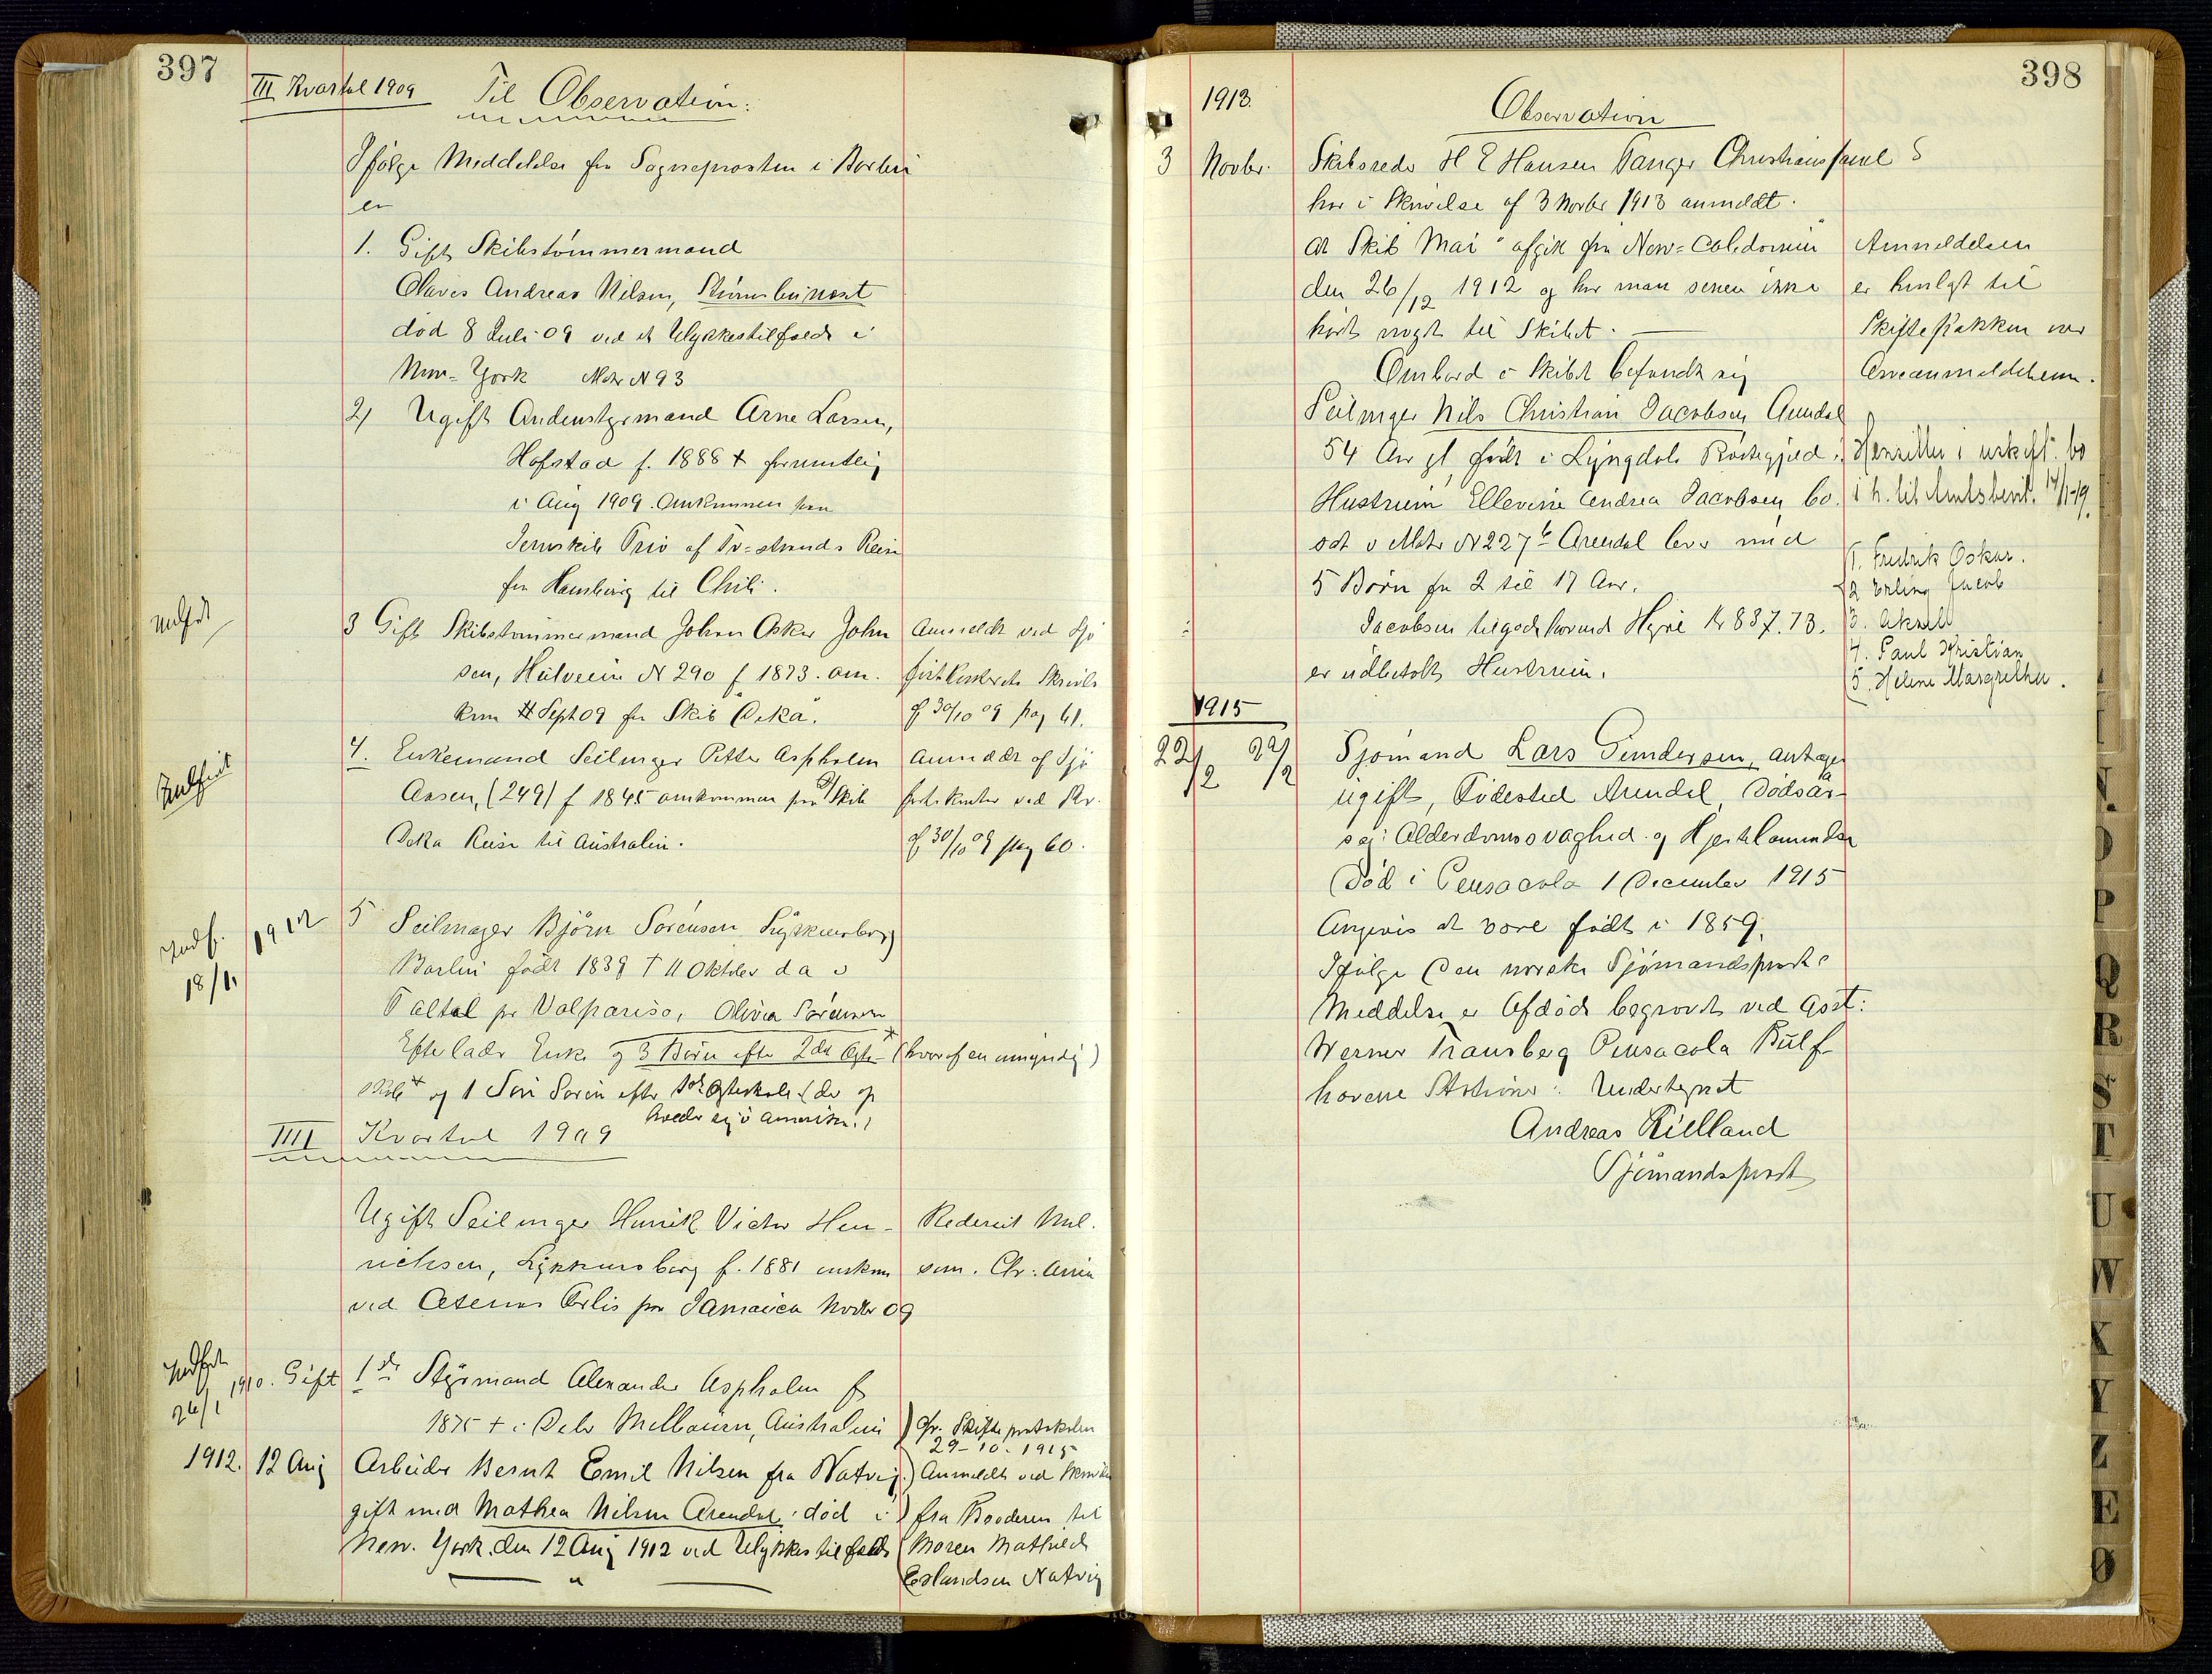 397
III Kvartal 1909 Til Observation:
Ifölge Meddelelse fra Sogneprosten i Barbu
er
1. Gift Skibstömmermand
Olaves Andreas Nilsen,
död 8 Juli 09 ved et Ulykkestilfælde i
New-York Matr N 93
2) Ugift Andenstyrmand Arne Larsen,
Hofstad f. 1888 + formentlig
i Aug 1909. Omkommen paa
Jernskib Trio af Tv=strands Reise
fra Hamburg til Chili.
3 Gift Skibstömmermand Johan Oskar John
sen, N 290 f 1873. om.
kom Sept 09 fra Skib Deka.
Anmeldt ved Sjö
fartskontorets Skrivelse
af 30/10 09 pag 61.
4. Enkemand Seilmager Petter Aspholm
Aasen, (249) f 1845 omkommen paa Skib
Deka Reise til Australien.
Anmeldt af Sjö
fartskontor ved Skr.
af 30/10 09 pag 60.
Indf. 18/1. 1912
5 Seilmager Björn Sörensen Lykkensborg
Barbu födt 1839 † 11 Oktober d a i
Taltal pr Valpariso, Olivia Sörensen
Efterlader Enke og 3 Börn efter 2det Ægte- (hvoraf en umyndig)
skab og 1 Sön Sören efter 1ste Ægteskab (der op
holder sig i Amerika.)
IIII Kvartal 1909
Ugift Seilmager Henrik Victor Hen-
richsen, Lykkensborg f. 1881 omkom
ved Forlis paa Jamaica Novbr 09
Rederiet Mel.
som. Chr:
Indført 26/1 1910. Gift 1ste Styrmand Alexander Aspholm f
1875 + i Melbourn, Australien
) Cfr. Skifteprotokolen
29-10-1915
1912. 12 Aug Arbeider Bernt Emil Nilsen fra Natvig
gift med Mathea Nilsen Arendal. död i
New. York. den 12 Aug 1912 ved Ulykkestilfælde
) Anmeldt ved
) fra Broderen til
(Moren Mathilde
Erlandsen Natvig
398
1913. Observation
3 Novbr. Skibsreder H E Hansen Tanger Christianssand S
har i Skrivelse af 3 Novbr 1913 anmeldt.
at Skib "Mai" afgik fra New=Caledonien
den 26/12 1912 og har man senere ikke
hört noget til Skibet.
Anmeldelsen
er henlagt til
Skiftepakken over
Arveanmeldelserne.
Ombord i Skibet befandt sig
Seilmager Nils Christian Jacobsen Arendal
54 Aar gl. födt i Lyngdals Præstegjeld.
Hustruen Ellevine Andrea Jacobsen, bo
sat i Matr N 227 b Arendal lever med
5 Börn fra 2 til 17 Aar.
Jacobsens tilgodehavende Hyre Kr 837.73.
er udbetalt Hustruen.
Hensitter i uskift. bo
i h. til Amtsbevil. 14/1-19.
1. Fredrik Oskar.
2 Erling Jacob
3. Aksel
4. Paul Kristian
5. Helene Margrethe.
1915
22/2 22/2 Sjömand Lars Gundersen, antagen
ugift, Födested Arendal, Dödsaar-
sag: Alderdomssvaghed. og Hjertelammelse
Död i Pensacola 1 December 1915
Angives at være födt i 1859.
Ifölge Den norske Sjömandsprest's
Meddelse er Afdöde begravet ved Asst:
Werner Transberg Pensacola Gülf
havene Station: Undertegnet
Andreas Kielland
Sjömandsprest
N
O
P
Q
R
S
T
U
W
X
Y
Z
Æ
Ø